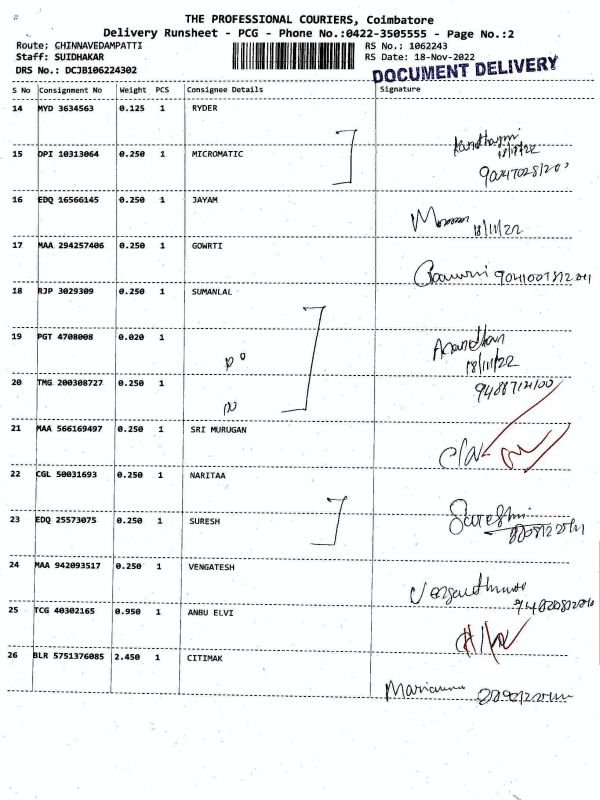 THE PROFESSIONAL COURIERS, Coimbatore
Delivery Runsheet - PCG - Phone No.:0422-3505555 - Page No.:2
Route: CHINNAVEDAMPATTI RS No.: 1062243
Staff: SUIDHAKAR RS Date: 18-Nov-2022
DRS No.: DCJB106224302 DOCUMENT DELIVERY
S No Consignment No Weight PCS Consignee Details Signature
14 MYD 3634563 0.125 1 RYDER
18/11/22
15 DPI 10313064 0.250 1 MICROMATIC
16 EDQ 16566145 0.250 1 JAYAM
18/11/22
17 MAA 294257406 0.250 1 GOWRTI
18 RJP 3029309 0.250 1 SUMANLAL
19 PGT 4708008 0.020 1
18/11/22
20 TMG 200308727 0.250 1
21 MAA 566169497 0.250 1 SRI MURUGAN
22 CGL 50031693 0.250 1 NARITAA
23 EDQ 25573075 0.250 1 SURESH
24 MAA 942093517 0.250 1 VENGATESH
25 TCG 40302165 0.950 1 ANBU ELVI
26 BLR 5751376085 2.450 1 CITIMAK